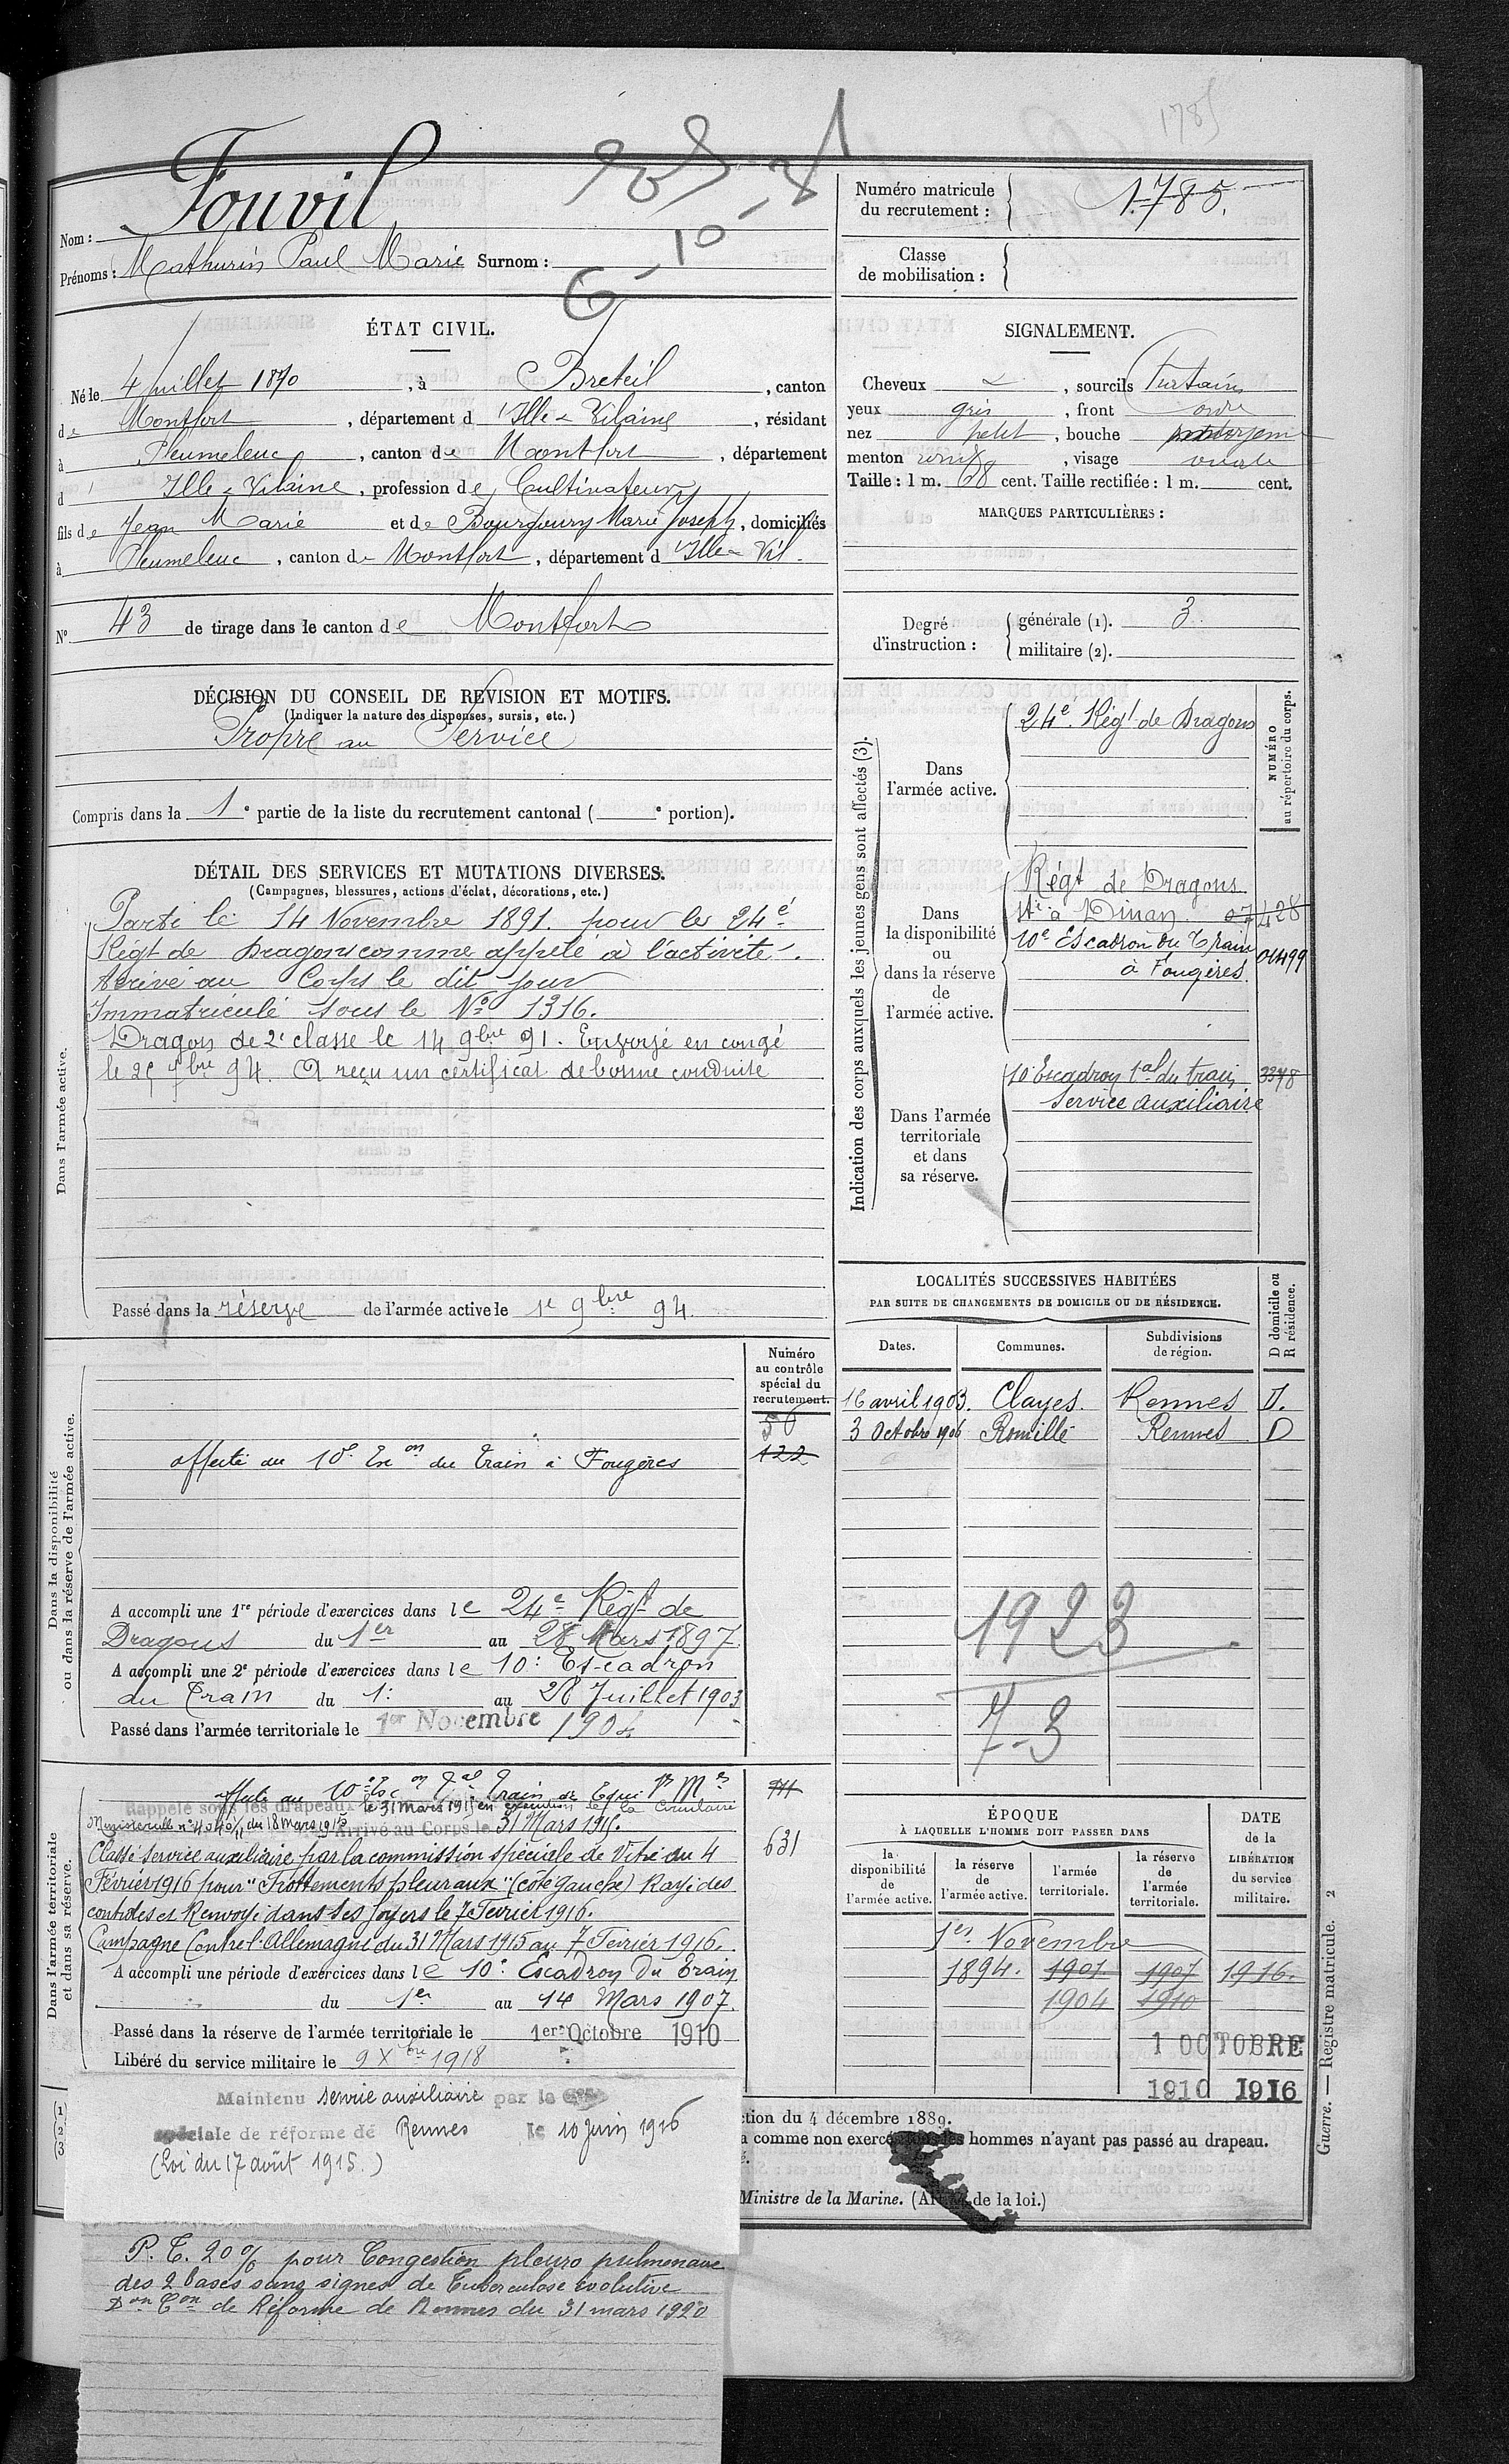 1785
Nom : Fouvil
Prénoms : Mathurin Paul Marie Surnom :
Numéro matricule du recrutement : 1.785.
Classe de mobilisation :
ÉTAT CIVIL.
Né le 4 juillet 1870, à Breteil, canton
de Montfort, département d'Ille-&-Vilaine, résidant
à Pleumeleuc, canton de Montfort, département
d'Ille-&-Vilaine, profession de Cultivateur
fils de Jean Marie et de Marie Joseph, domiciliés
à Pleumeleuc, canton de Montfort, département d'Ille-&-Vil.
N° 43 de tirage dans le canton de Montfort
SIGNALEMENT.
Cheveux , sourcils
yeux gris, front ordre
nez petit, bouche moyenne
menton rond, visage ovale
Taille : 1 m. 68 cent. Taille rectifiée : 1 m. cent.
MARQUES PARTICULIÈRES :
Degré d'instruction : générale (1). 3
militaire (2).
DÉCISION DU CONSEIL DE REVISION ET MOTIFS.
(Indiquer la nature des dispenses, sursis, etc.)
Propre au Service
Compris dans la 1e partie de la liste du recrutement cantonal ( e portion).
DÉTAIL DES SERVICES ET MUTATIONS DIVERSES.
(Campagnes, blessures, actions d'éclat, décorations, etc.)
Dans l'armée active.
Parti le 14 Novembre 1891 pour le 24e
Régt de Dragons comme appelé à l'activité.
Arrivé au Corps le dit jour
Immatriculé sous le No 1316.
Dragon de 2e classe le 14 9bre 91. Envoyé en congé
le 25 7bre 94. A reçu un certificat de bonne conduite
Passé dans la réserve de l'armée active le 1e 9bre 94.
Indication des corps auxquels les jeunes gens sont affectés (3).
NUMÉRO au répertoire du corps.
Dans l'armée active.
24e Régt de Dragons
Dans la disponibilité ou dans la réserve de l'armée active.
Régt de Dragons
à Dinan. 428
10e Escadron du Train 01499
à Fougères
Dans l'armée territoriale et dans sa réserve.
10 Escadron tal du train 3378
Service auxiliaire
LOCALITÉS SUCCESSIVES HABITÉES
PAR SUITE DE CHANGEMENTS DE DOMICILE OU DE RÉSIDENCE.
Dates. Communes. Subdivisions de région. D domicile ou R résidence.
16 avril 1903. Clayes. Rennes D.
3 Octobre 1906 Romillé Rennes D
1923
7-3
Dans la disponibilité ou dans la réserve de l'armée active.
Numéro au contrôle spécial du recrutement.
50
122
Affecté au 10e Eson du Train à Fougères
A accompli une 1re période d'exercices dans le 24e Régt de
Dragons du 1er au 28 Mars 1897
A accompli une 2e période d'exercices dans le 10e Escadron
du Train du 1e au 28 Juillet 1903
Passé dans l'armée territoriale le 1er Novembre 1904
Dans l'armée territoriale et dans sa réserve.
Affecté au 10e Escon Tal Train
Rappelé sous les drapeaux le 31 Mars 1915 en exécution de la Circulaire
Ministerielle du 18 Mars 1915 Arrivé au Corps le 31 Mars 1915.
631
Classé Service auxiliaire par la commission spéciale de Vitré du 4
Février 1916 pour "Frottements pleuraux" (côté gauche) Rayé des
controles et Renvoyé dans ses foyers le 7 Février 1916.
Campagne Contre l'Allemagne du 31 Mars 1915 au 7 Février 1916.
A accompli une période d'exercices dans le 10e Escadron du Train
du 1er au 14 Mars 1907.
Passé dans la réserve de l'armée territoriale le 1er Octobre 1910
Libéré du service militaire le 9 Xbre 1918
ÉPOQUE
À LAQUELLE L'HOMME DOIT PASSER DANS
la disponibilité de l'armée active. la réserve de l'armée active. l'armée territoriale. la réserve de l'armée territoriale. DATE de la LIBÉRATION du service militaire.
1er Novembre
1894. 1901 1907 1916.
1904 1910
1 OCTOBRE
1910 1916
Guerre. — Registre matricule. 2
Maintenu service auxiliaire par la
spéciale de réforme de Rennes le 10 Juin 1916
(Loi du 17 août 1915.)
ction du 4 décembre 1889.
a comme non exercé hommes n'ayant pas passé au drapeau.
Ministre de la Marine. (Art. de la loi.)
P. T. 20 % pour Congestion pleuro pulmonaire
des 2 bases sans signes de Tuberculose évolutive
Don Con de Réforme de Rennes du 31 mars 1920